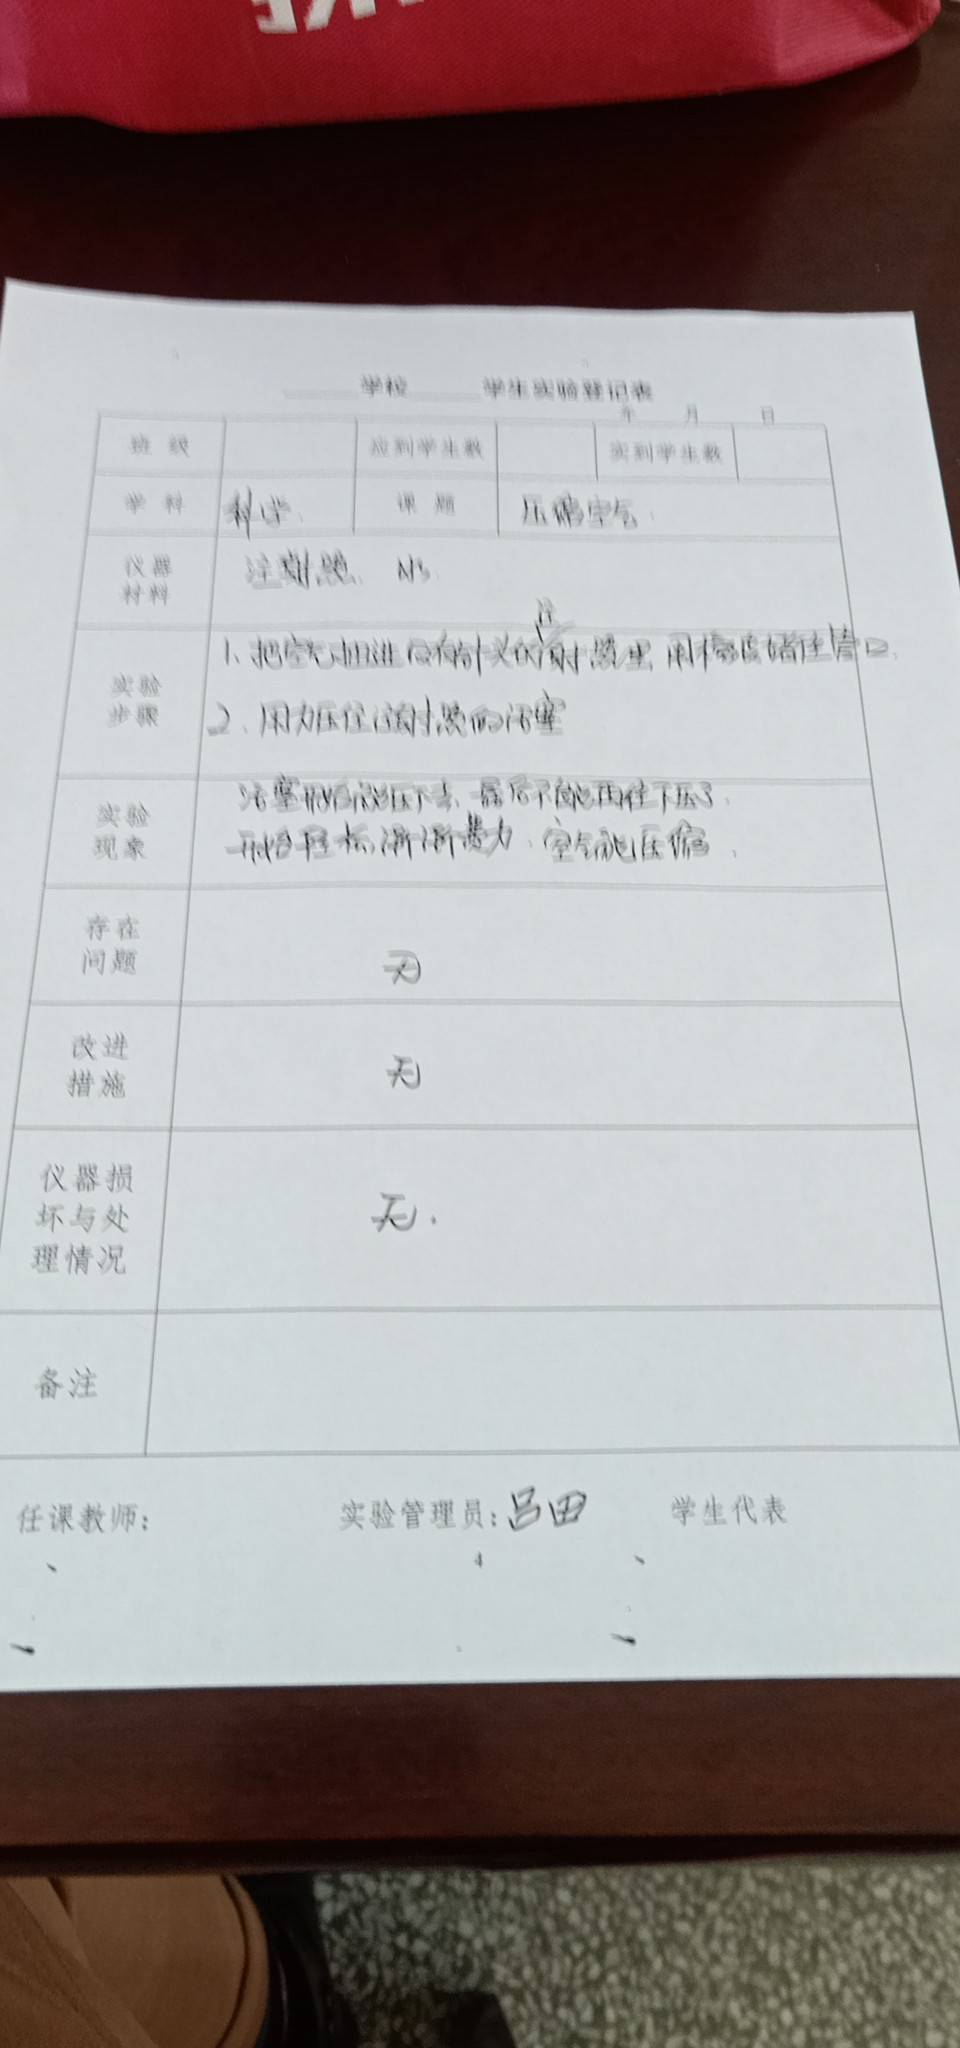 学校 学生实验登记表
年 月 日
班 级 应到学生数 实到学生数
学 科 科学 课 题 压缩空气
仪器材料 注射器、
实验步骤 1、把空气抽进没有针头的注射器里,用橡皮堵住管口、
2、用力压住注射器的活塞
实验现象 活塞开始能压下去、最后不能再往下压了、
开始轻松,渐渐费力、空气能压缩、
存在问题 无
改进措施 无
仪器损坏与处理情况 无.
备注
任课教师: 实验管理员:吕田 学生代表
4